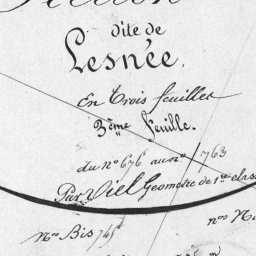 Section
dite de
Lesnée.
En Trois feuilles
3ème Feuille.
du n° 676 au n° 763
Par Viel Géomètre de 1re class
n° Bis 745